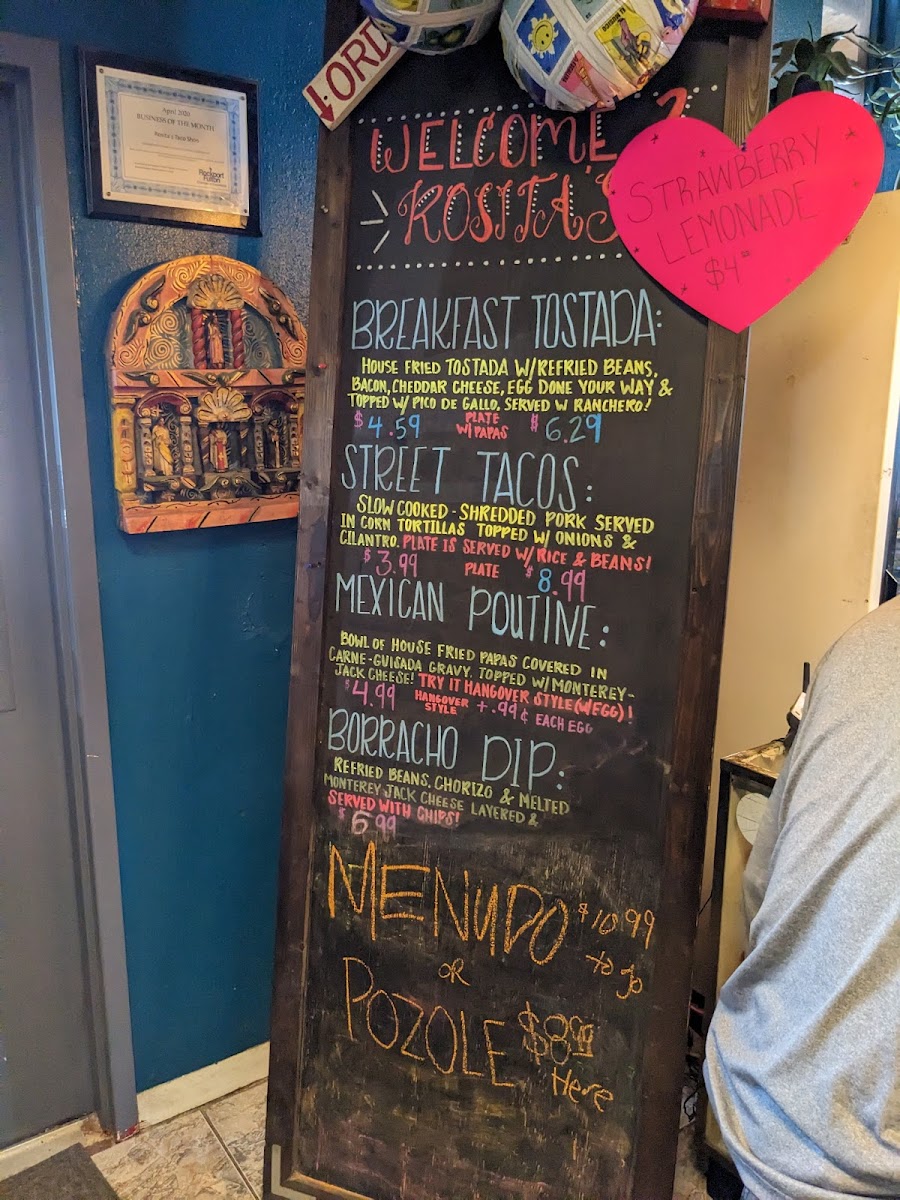 April 2020
BUSINESS OF THE MONTH
Rosita's Taco Shop
Rockport
Fulton
ORD
WELCOME 2
ROSITA'S
STRAWBERRY
LEMONADE
$4
BREAKFAST TOSTADA:
HOUSE FRIED TOSTADA W/REFRIED BEANS,
BACON, CHEDDAR CHEESE, EGG DONE YOUR WAY &
TOPPED W/ PICO DE GALLO. SERVED W RANCHERO!
$4.59 PLATE W/PAPAS $6.29
STREET TACOS:
SLOW COOKED - SHREDDED PORK SERVED
IN CORN TORTILLAS TOPPED W/ ONIONS &
CILANTRO. PLATE IS SERVED W/ RICE & BEANS!
$3.99 PLATE $8.99
MEXICAN POUTINE:
BOWL OF HOUSE FRIED PAPAS COVERED IN
CARNE-GUISADA GRAVY. TOPPED W/MONTEREY-
JACK CHEESE! TRY IT HANGOVER STYLE (W/EGG)!
$4.99 HANGOVER STYLE + .99¢ EACH EGG
BORRACHO DIP:
REFRIED BEANS, CHORIZO & MELTED
MONTEREY JACK CHEESE LAYERED &
SERVED WITH CHIPS!
$6.99
MENUDO $10.99
to go
OR
POZOLE $8.99
Here